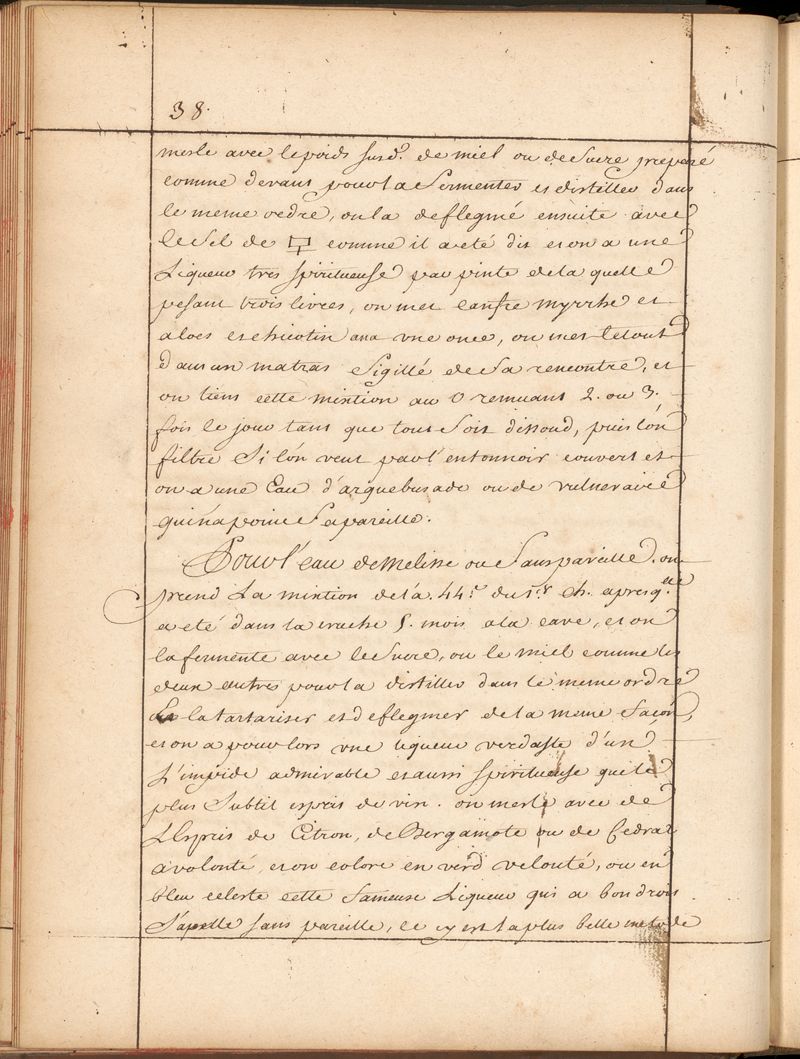 38.
mesle avec le poids susd.t de miel ou de Sucre preparé
comme devant pour la fermenter et distiller dans
le meme ordre, on la deflegme ensuite avec
le Sel de comme il a eté dit et on a une
Liqueur tres spiritueuse par pinte de la quelle
pesant trois livres, on met myrrhe et
aloes chicotin ana une once, on met le tout
dans un matras Sigillé de Sa rencontre, et
on tiens cette mixtion au remuant 2. ou 3.
fois le jour tant que tout Soit dissoud, puis l'on
filtre Si l'on veut par l'entonnoir couvert et
on a une Eau d'arquebusade ou de vulneraire
qui n'a point Sa pareille.
Pour l'eau de Melisse ou Sanspareille, on
prend La mixtion de la 44.e du 1.er ch. apres q.elle
a eté dans la cruche 5. mois a la cave, et on
la fermente avec le Sucre, ou le miel comme les
deux autres pour la distiller dans le meme ordre
la tartariser et deflegmer de la meme Façon,
et on a pour lors une liqueur verdaste d'un
L'impide admirable et aussi spiritueuse que le
plus Subtil esprit de vin. on mesle avec de
L'Esprit de Citron, de Bergamote ou de Cedrat
a volonté, et on colore en verd velouté, ou en
bleu celeste cette fameuse Liqueur qui a bon droit
S'apelle sans pareille, ce cy est la plus belle metode